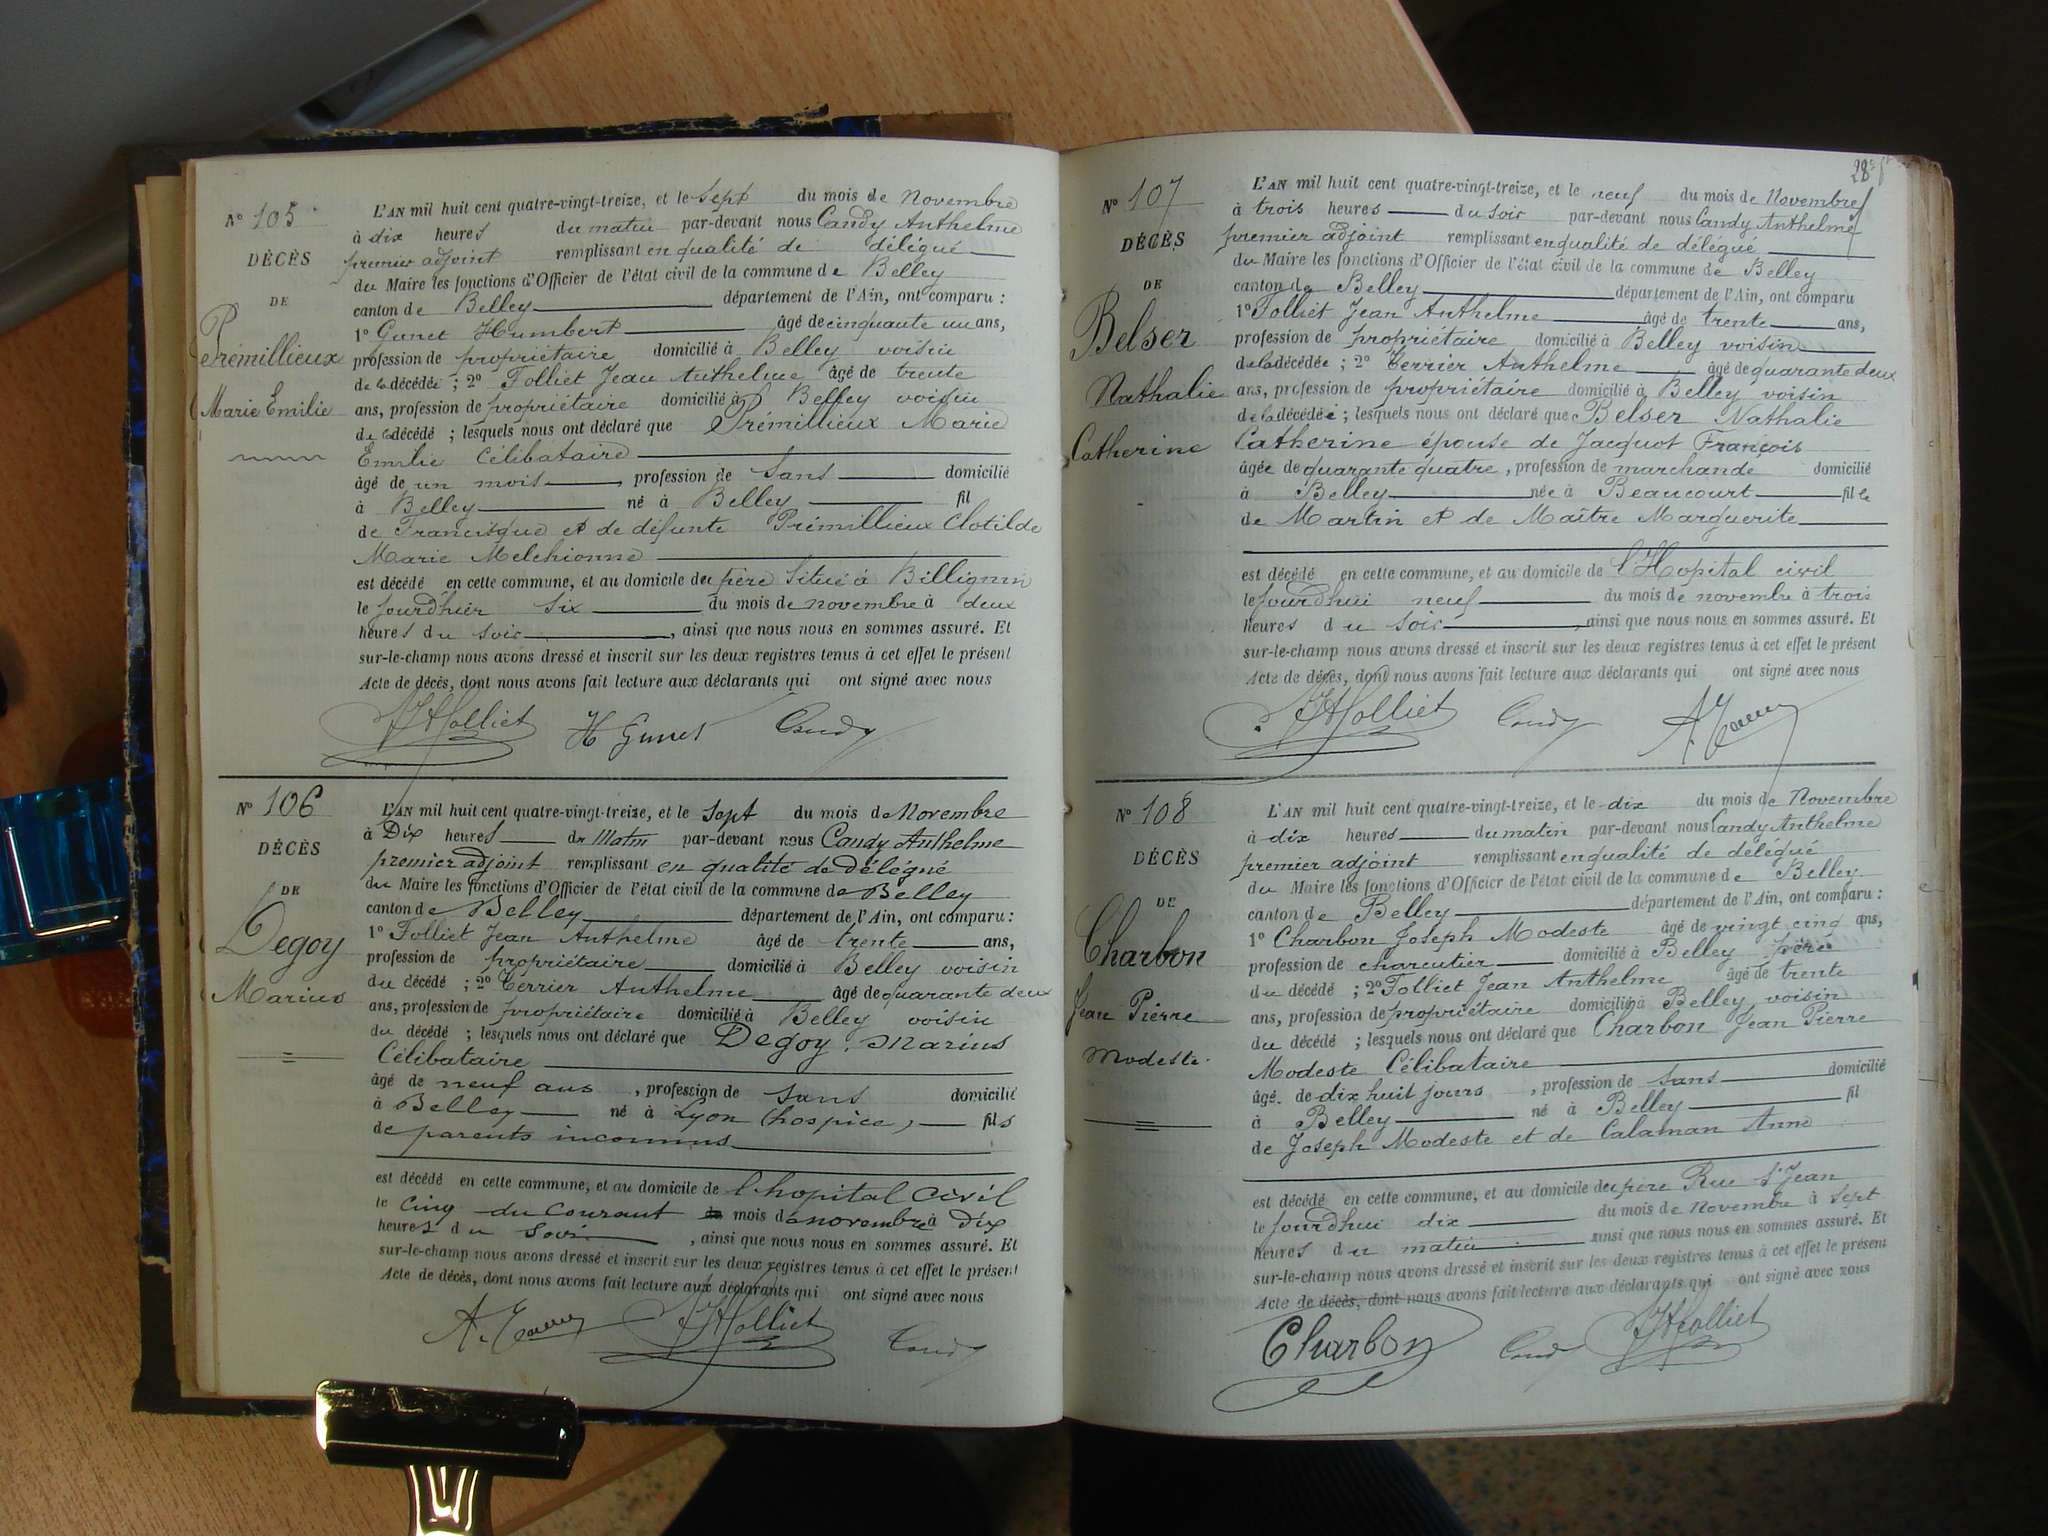 N° 105
DÉCÈS
DE
Prémillieux
Marie Emilie
L'AN mil huit cent quatre-vingt-treize, et le Sept du mois de Novembre
à dix heures du matin par-devant nous Candy Anthelme
premier adjoint remplissant en qualité de délégué
du Maire les fonctions d'Officier de l'état civil de la commune de Belley
canton de Belley département de l'Ain, ont comparu :
1° Gunet Humbert âgé de cinquante un ans,
profession de propriétaire domicilié à Belley voisin
de la décédée ; 2° Tolliet Jean Anthelme âgé de trente
ans, profession de propriétaire domicilié à Belley voisin
de la décédé ; lesquels nous ont déclaré que Prémillieux Marie
Emilie Célibataire
âgé de un mois, profession de Sans domicilié
à Belley né à Belley fil
de Francisque et de défunte Prémillieux Clotilde
Marie Melchionne
est décédé en cette commune, et au domicile du père Situé à Billignin
le jourdhier six du mois de novembre à deux
heures du soir, ainsi que nous nous en sommes assuré. Et
sur-le-champ nous avons dressé et inscrit sur les deux registres tenus à cet effet le présent
Acte de décès, dont nous avons fait lecture aux déclarants qui ont signé avec nous
JATolliet H Gunet Candy
N° 106
DÉCÈS
DE
Degoy
Marius
L'AN mil huit cent quatre-vingt-treize, et le Sept du mois de Novembre
à Dix heures du Matin par-devant nous Candy Anthelme
premier adjoint remplissant en qualité de Délégué
du Maire les fonctions d'Officier de l'état civil de la commune de Belley
canton de Belley département de l'Ain, ont comparu :
1° Tolliet Jean Anthelme âgé de trente ans,
profession de propriétaire domicilié à Belley voisin
du décédé ; 2° Terrier Anthelme âgé de quarante deux
ans, profession de propriétaire domicilié à Belley voisin
du décédé ; lesquels nous ont déclaré que Degoy Marius
Célibataire
âgé de neuf ans, profession de Sans domicilié
à Belley né à Lyon (hospice) fils
de parents inconnus
est décédé en cette commune, et au domicile de l'hopital civil
le cinq du Courant mois de novembre à Dix
heures du Soir, ainsi que nous nous en sommes assuré. Et
sur-le-champ nous avons dressé et inscrit sur les deux registres tenus à cet effet le présent
Acte de décès, dont nous avons fait lecture aux déclarants qui ont signé avec nous
A. Terrier JATolliet Candy
28
N° 107
DÉCÈS
DE
Belser
Nathalie
Catherine
L'AN mil huit cent quatre-vingt-treize, et le neuf du mois de Novembre
à trois heures du soir par-devant nous Candy Anthelme
premier adjoint remplissant en qualité de délégué
du Maire les fonctions d'Officier de l'état civil de la commune de Belley
canton de Belley département de l'Ain, ont comparu
1° Tolliet Jean Anthelme âgé de trente ans,
profession de propriétaire domicilié à Belley voisin
de la décédée ; 2° Terrier Anthelme âgé de quarante deux
ans, profession de propriétaire domicilié à Belley voisin
de la décédée ; lesquels nous ont déclaré que Belser Nathalie
Catherine épouse de Jacquot François
âgée de quarante quatre, profession de marchande domicilié
à Belley née à Beaucourt fille
de Martin et de Maître Marguerite
est décédé en cette commune, et au domicile de l'Hopital civil
le jourdhui neuf du mois de novembre à trois
heures du soir, ainsi que nous nous en sommes assuré. Et
sur-le-champ nous avons dressé et inscrit sur les deux registres tenus à cet effet le présent
Acte de décès, dont nous avons fait lecture aux déclarants qui ont signé avec nous
JATolliet Candy A. Terrier
N° 108
DÉCÈS
DE
Charbon
Jean Pierre
Modeste
L'AN mil huit cent quatre-vingt-treize, et le dix du mois de Novembre
à dix heures du matin par-devant nous Candy Anthelme
premier adjoint remplissant en qualité de délégué
du Maire les fonctions d'Officier de l'état civil de la commune de Belley
canton de Belley département de l'Ain, ont comparu :
1° Charbon Joseph Modeste âgé de vingt cinq ans,
profession de charcutier domicilié à Belley père
du décédé ; 2° Tolliet Jean Anthelme âgé de trente
ans, profession de propriétaire domicilié à Belley voisin
du décédé ; lesquels nous ont déclaré que Charbon Jean Pierre
Modeste Célibataire
âgé de dix huit jours, profession de Sans domicilié
à Belley né à Belley fil
de Joseph Modeste et de Calaman Anne
est décédé en cette commune, et au domicile du père Rue St Jean
le jourdhui dix du mois de Novembre à Sept
heures du matin ainsi que nous nous en sommes assuré. Et
sur-le-champ nous avons dressé et inscrit sur les deux registres tenus à cet effet le présent
Acte de décès, dont nous avons fait lecture aux déclarants qui ont signé avec nous
Charbon Candy JATolliet